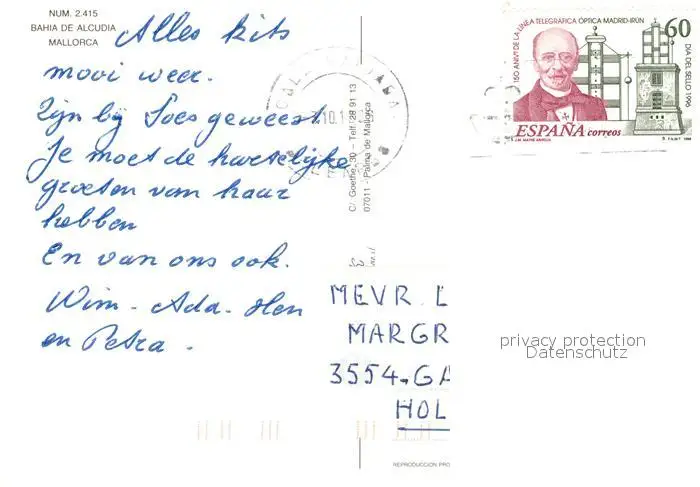 NUM. 2.415
BAHIA DE ALCUDIA
MALLORCA
Alles kits
mooi weer.
Zijn bij Loes geweest
Je moet de hartelijke
groeten van haar
hebben
En van ons ook.
Wim - Ada - Hen
en Petra.
C/. Goethe, 30 – Telf. 28 91 13
07011 - Palma de Mallorca
150 ANIVº DE LA LINEA TELEGRAFICA OPTICA MADRID-IRUN
60
DIA DEL SELLO 1996
ESPAÑA correos
MEVR. L
MARGR
3554-GA
HOL
privacy protection
Datenschutz
REPRODUCCION PRO